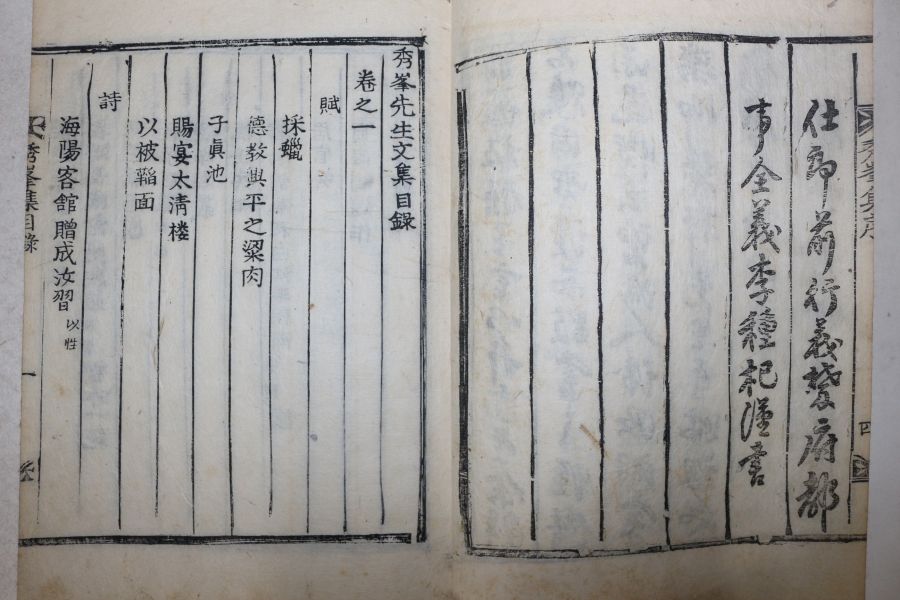 秀峯集序
四
仕郎前行義禁府都
事全義李種杞謹書
秀峯先生文集目録
卷之一
賦
採蠟
德教興平之粱肉
子眞池
賜宴太淸楼
以被韜面
詩
海陽客館贈成汝習 以性
秀峯集目錄
一